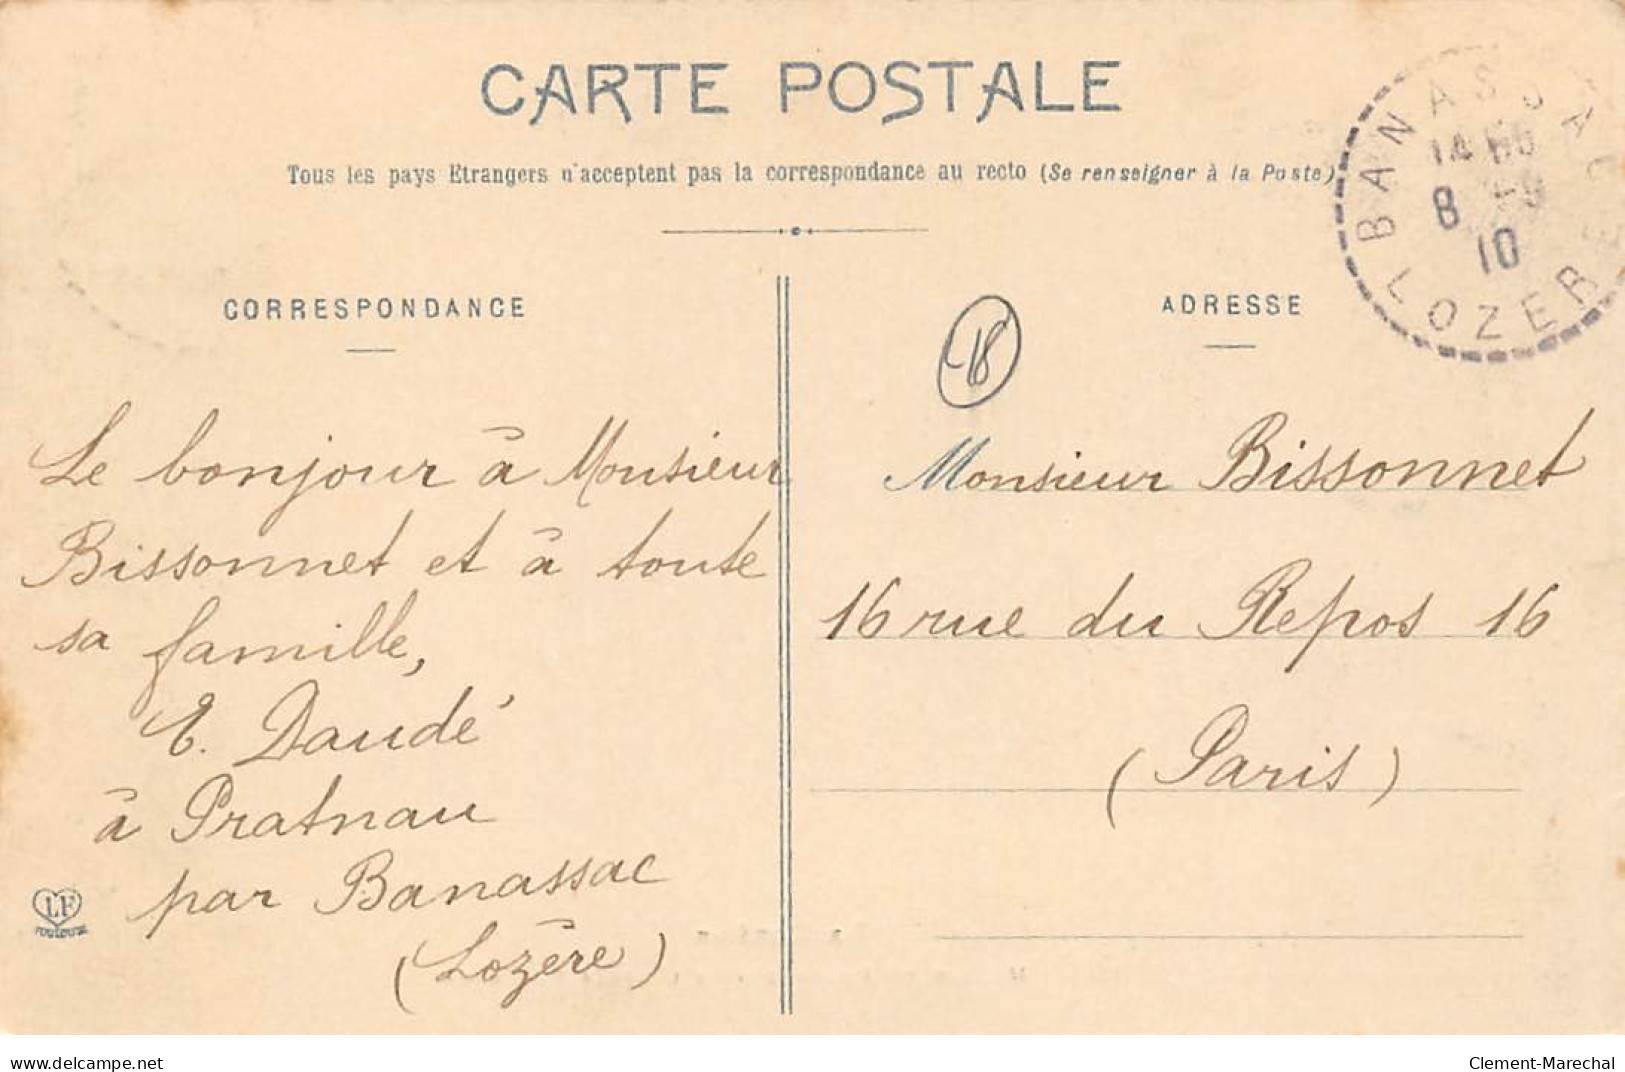 CARTE POSTALE
Tous les pays Etrangers n'acceptent pas la correspondance au recto (Se renseigner à la Poste)
BANASSAC
8
10
LOZERE
CORRESPONDANCE
Le bonjour à Monsieur
Bissonnet et à toute
sa famille,
E. Daudé
à Pratnau
par Banassac
(Lozère)
LF
TOULOUSE
ADRESSE
18
Monsieur Bissonnet
16 rue du Repos 16
(Paris)
www.delcampe.net
Clement-Marechal